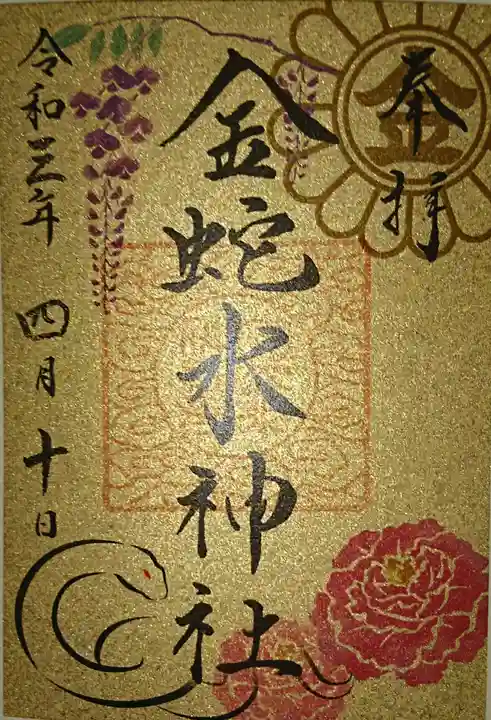 奉拝
金蛇水神社
令和三年
四月十日
金